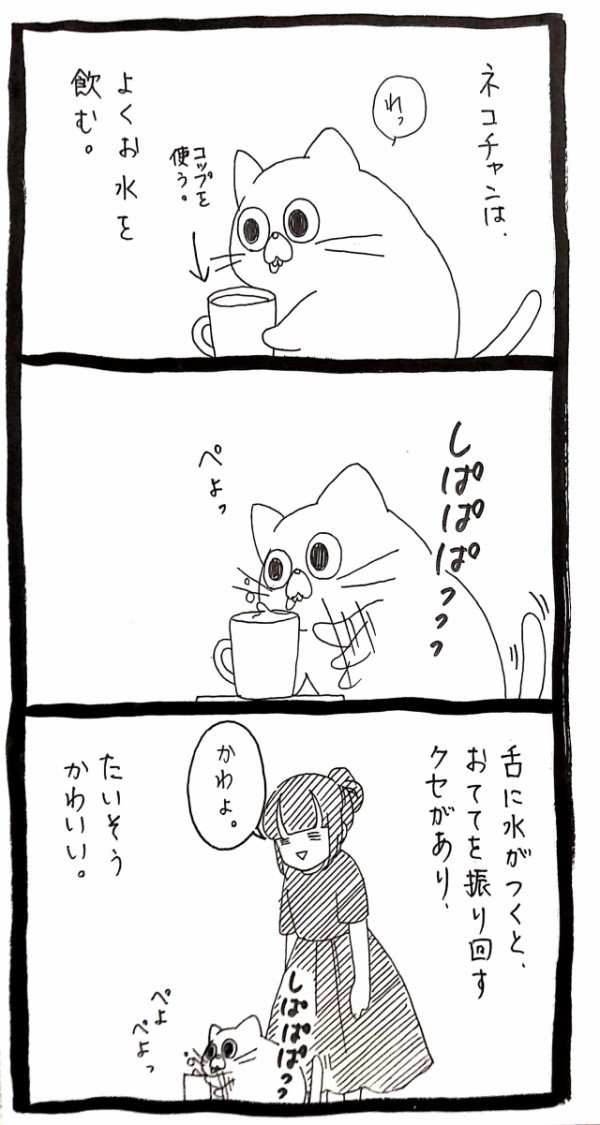 ネコチャンは、
れっ
よくお水を
飲む。
コップを
使う。
しぱぱぱっっっ
ぺょっ
舌に水がつくと、
おててを振り回す
クセがあり、
かわよ。
たいそう
かわいい。
しぱぱぱっっ
ぺょ
ぺょっ